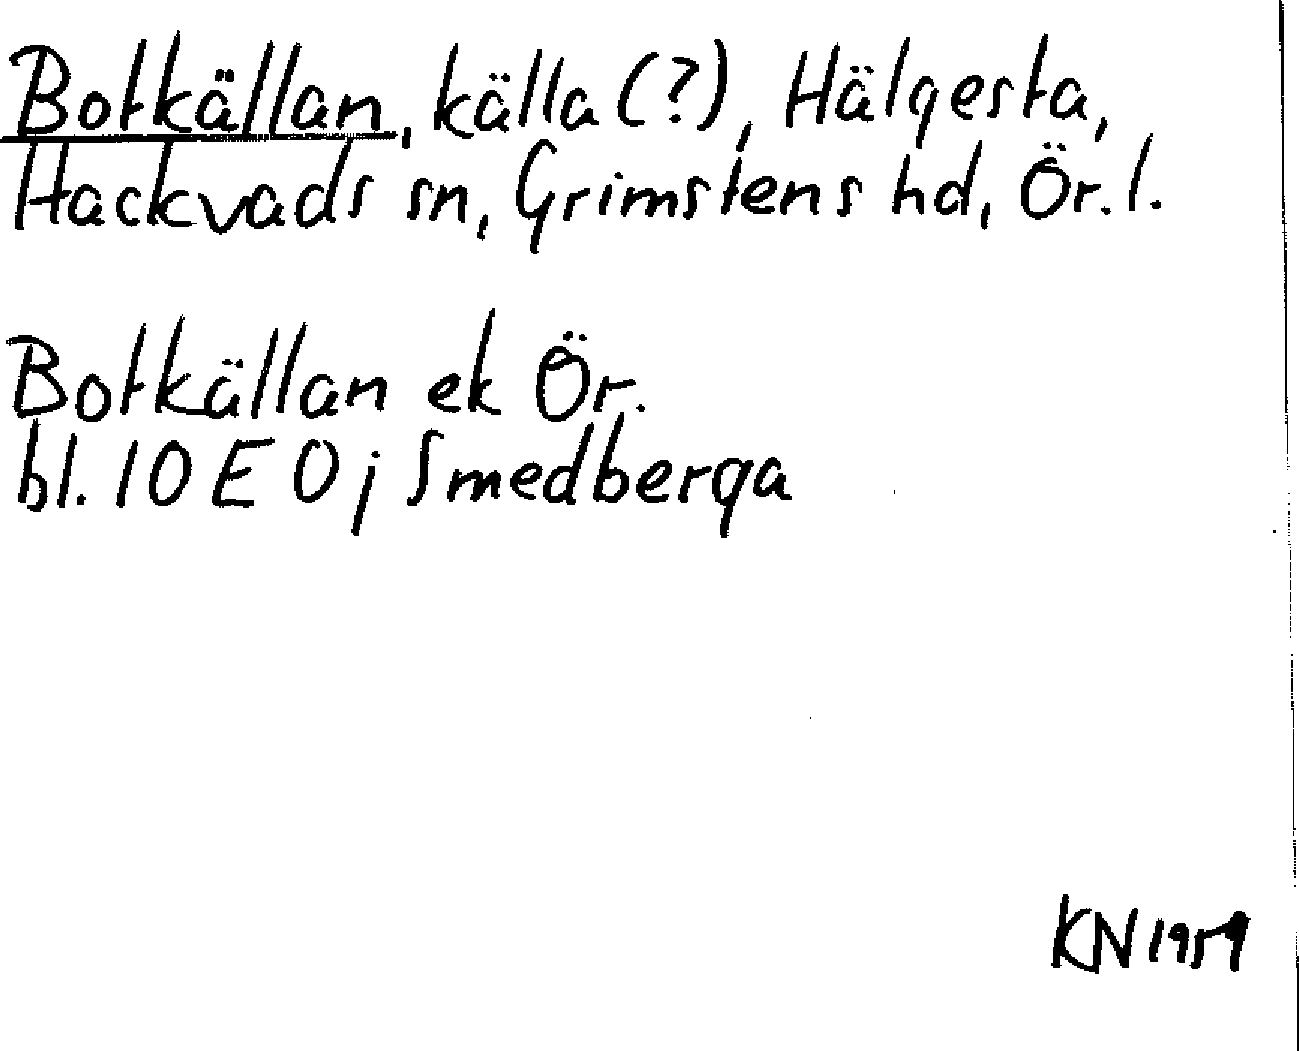 Botkällan, källa (?), Hälgesta,
Hackvads sn, Grimstens hd, Ör. l.
Botkällan ek Ör.
bl. 10 E 0 j Smedberga
KN 1959